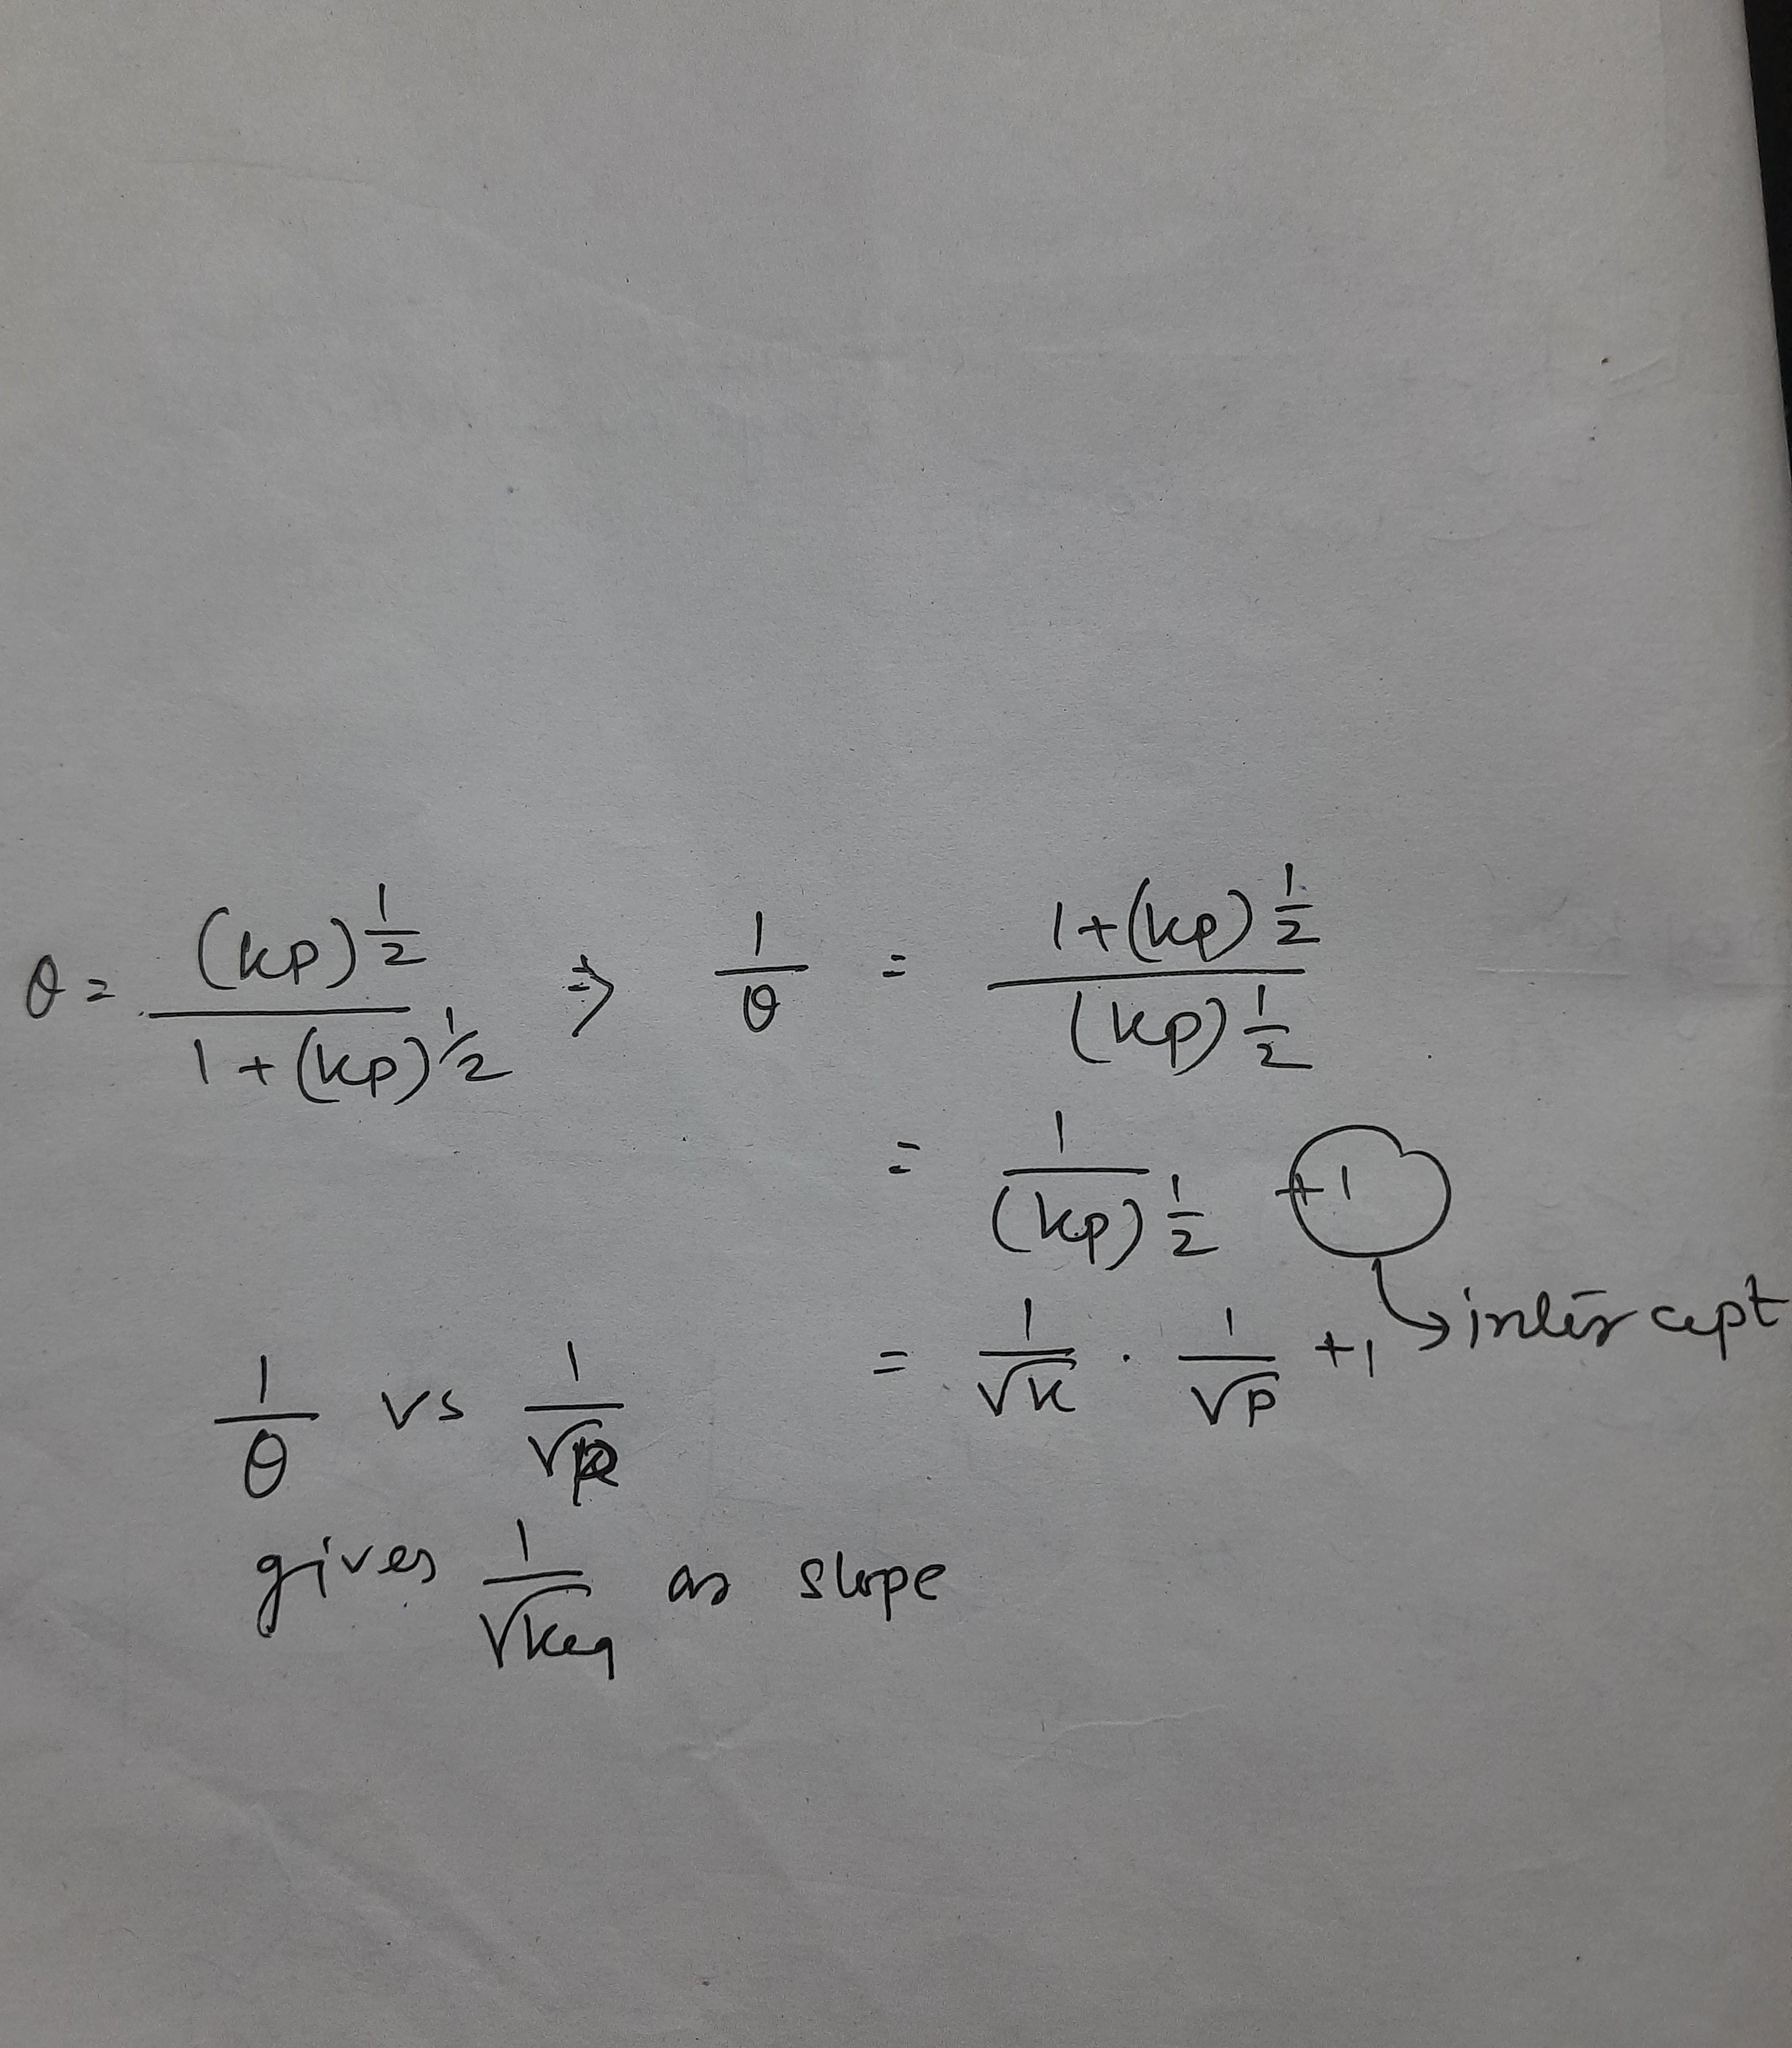 θ = (kp)^1/2 / 1+(kp)^1/2 ⇒ 1/θ = 1+(kp)^1/2 / (kp)^1/2
= 1/(kp)^1/2 +1
→ intercept
= 1/√k · 1/√p +1
1/θ vs 1/√p
gives 1/√keq as slope